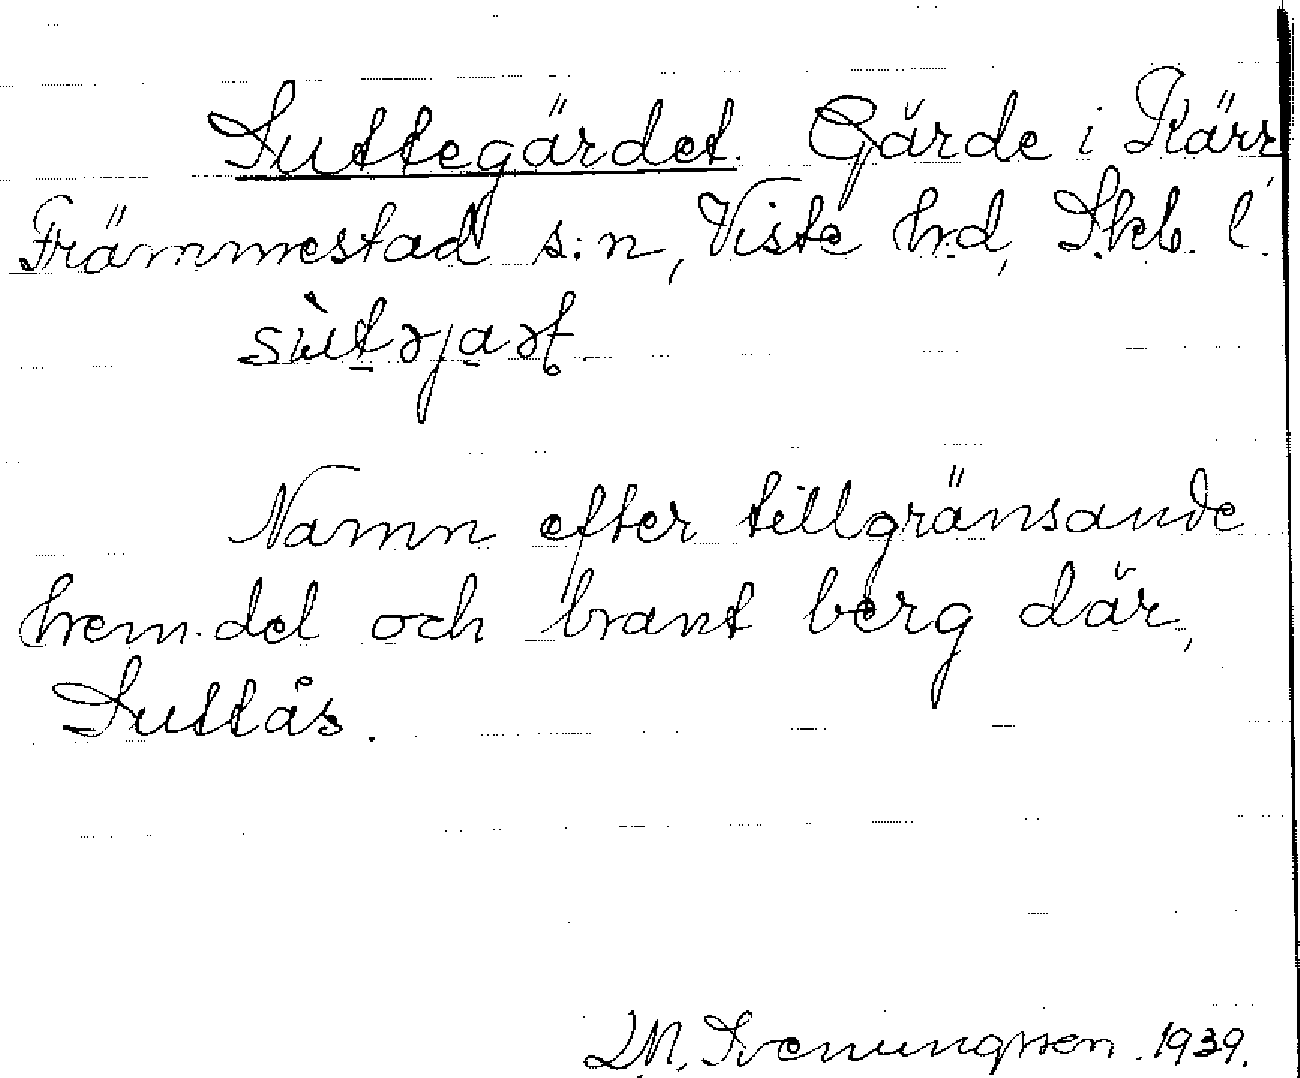 Suttegärdet. Gärde i Kärr
Främmestad s:n, Viste hd, Skb. l.
sùtəjaət
Namn efter tillgränsande
hem.del och brant berg där,
Suttås.
D.M. Sveningsson. 1939.